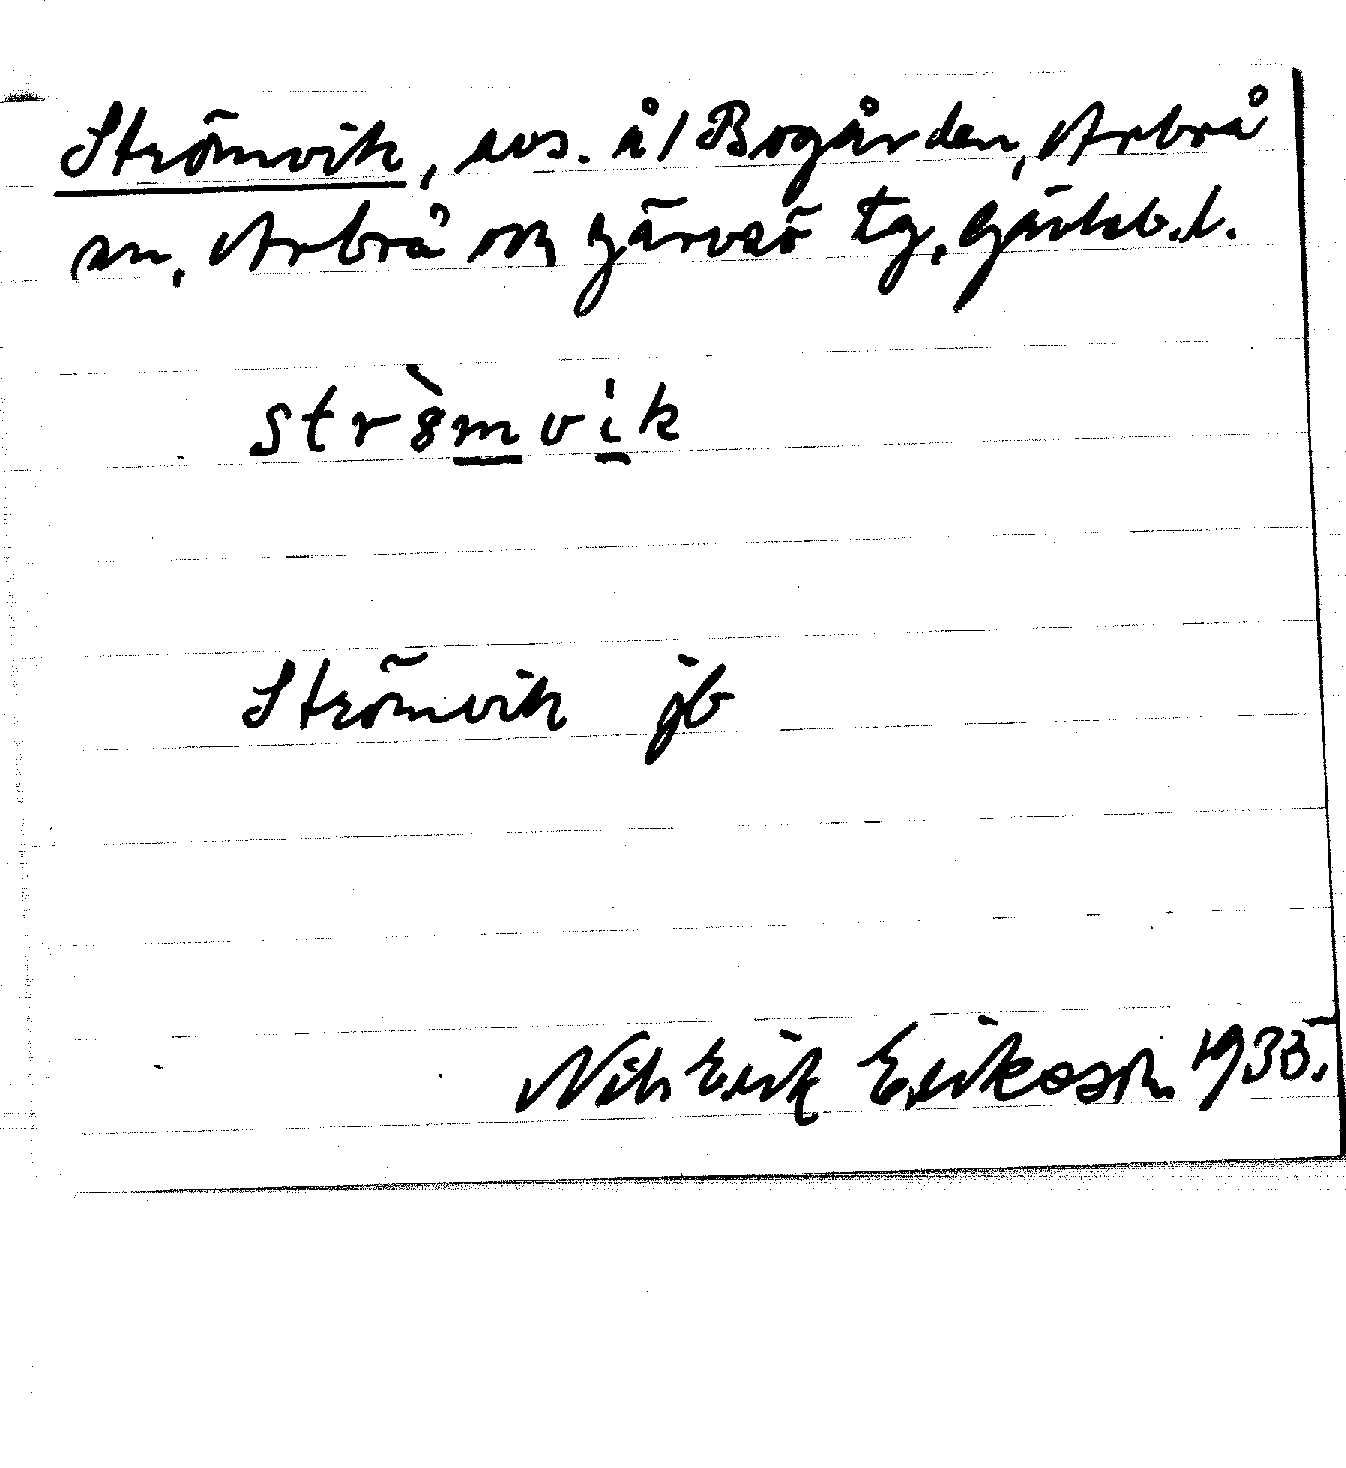 Strömvik, avs. å/ Bogården, Arbrå
sn, Arbrå och Järvsö tg, Gävleb. l.
strö̀mvik
Strömvik jb
Nils Erik Eriksson 1935.